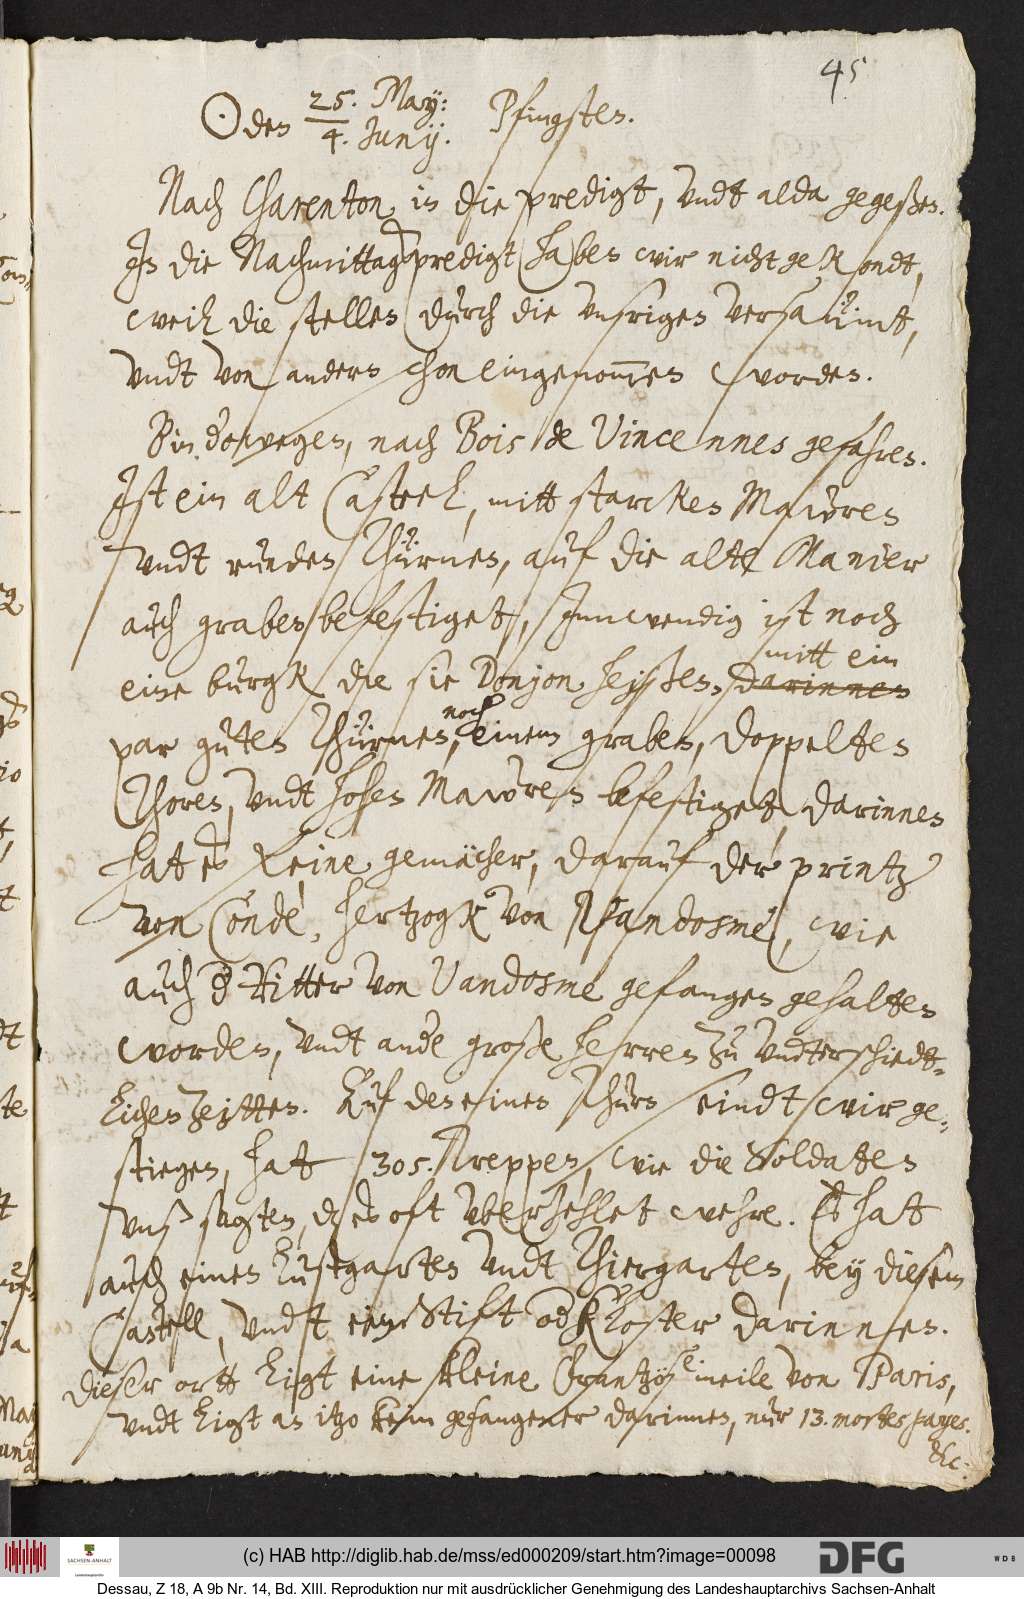 45
☉ den 25. May: / 4. Junij. Pfingsten.
Nach Charenton in die predigt, undt alda gegeßen.
In die Nachmittagspredigt haben wir nicht gekondt,
weil die stellen durch die unsrigen versaümt,
undt von andern schon eingenom̄en worden.
Bin derwegen, nach Bois de Vincennes gefahren.
Ist ein alt Castell, mitt starcken Mawren
undt runden Thürnen, auf die alte Manier
auch graben befestiget, Innwendig ist noch
mitt ein
eine burgk die sie Donjon heyßen, darinnen
noch
par guten Thürnen, einem graben, doppelten
Thoren, undt hohen Mawren befestiget, darinnen
hat es kleine gemächer, darauf der printz
von Condé, hertzogk von Vandosme, wie
auch d Ritter von Vandosme gefangen gehalten
worden, undt ande große herren zu undterschiedt-
lichen zeitten. Auf den einen Thurn seindt wir ge-
stiegen, hat 305. Treppen, wie die Soldaten
unß sagten, dz es oft uberzehlet wehre. Es hat
auch einen Lustgarten undt Thiergarten, bey diesem
Castell, undt ein Stift od Kloster darinnen.
Dieser ortt ligt eine kleine frantzös. meile von Paris,
undt ligt an itzo kein gefangener darinnen, nur 13. mortes payes.
etc:
(c) HAB http://diglib.hab.de/mss/ed000209/start.htm?image=00098
SACHSEN-ANHALT
DFG
WDB
Dessau, Z 18, A 9b Nr. 14, Bd. XIII. Reproduktion nur mit ausdrücklicher Genehmigung des Landeshauptarchivs Sachsen-Anhalt